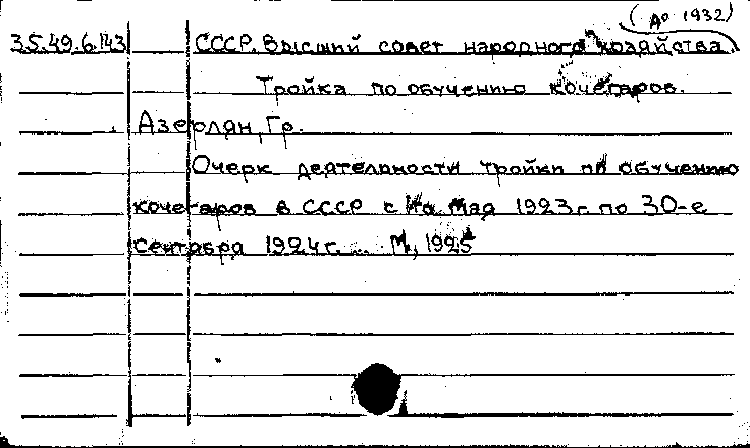 (до 1932)
35.49.6.143 СССР. Высший совет народного хозяйства.
Тройка по обучению кочегаров.
Азерлян, Гр.
Очерк деятельности тройки по обучению
кочегаров в СССР с мая 1923 г. по 30-е
сентября 1924 г. М, 1925